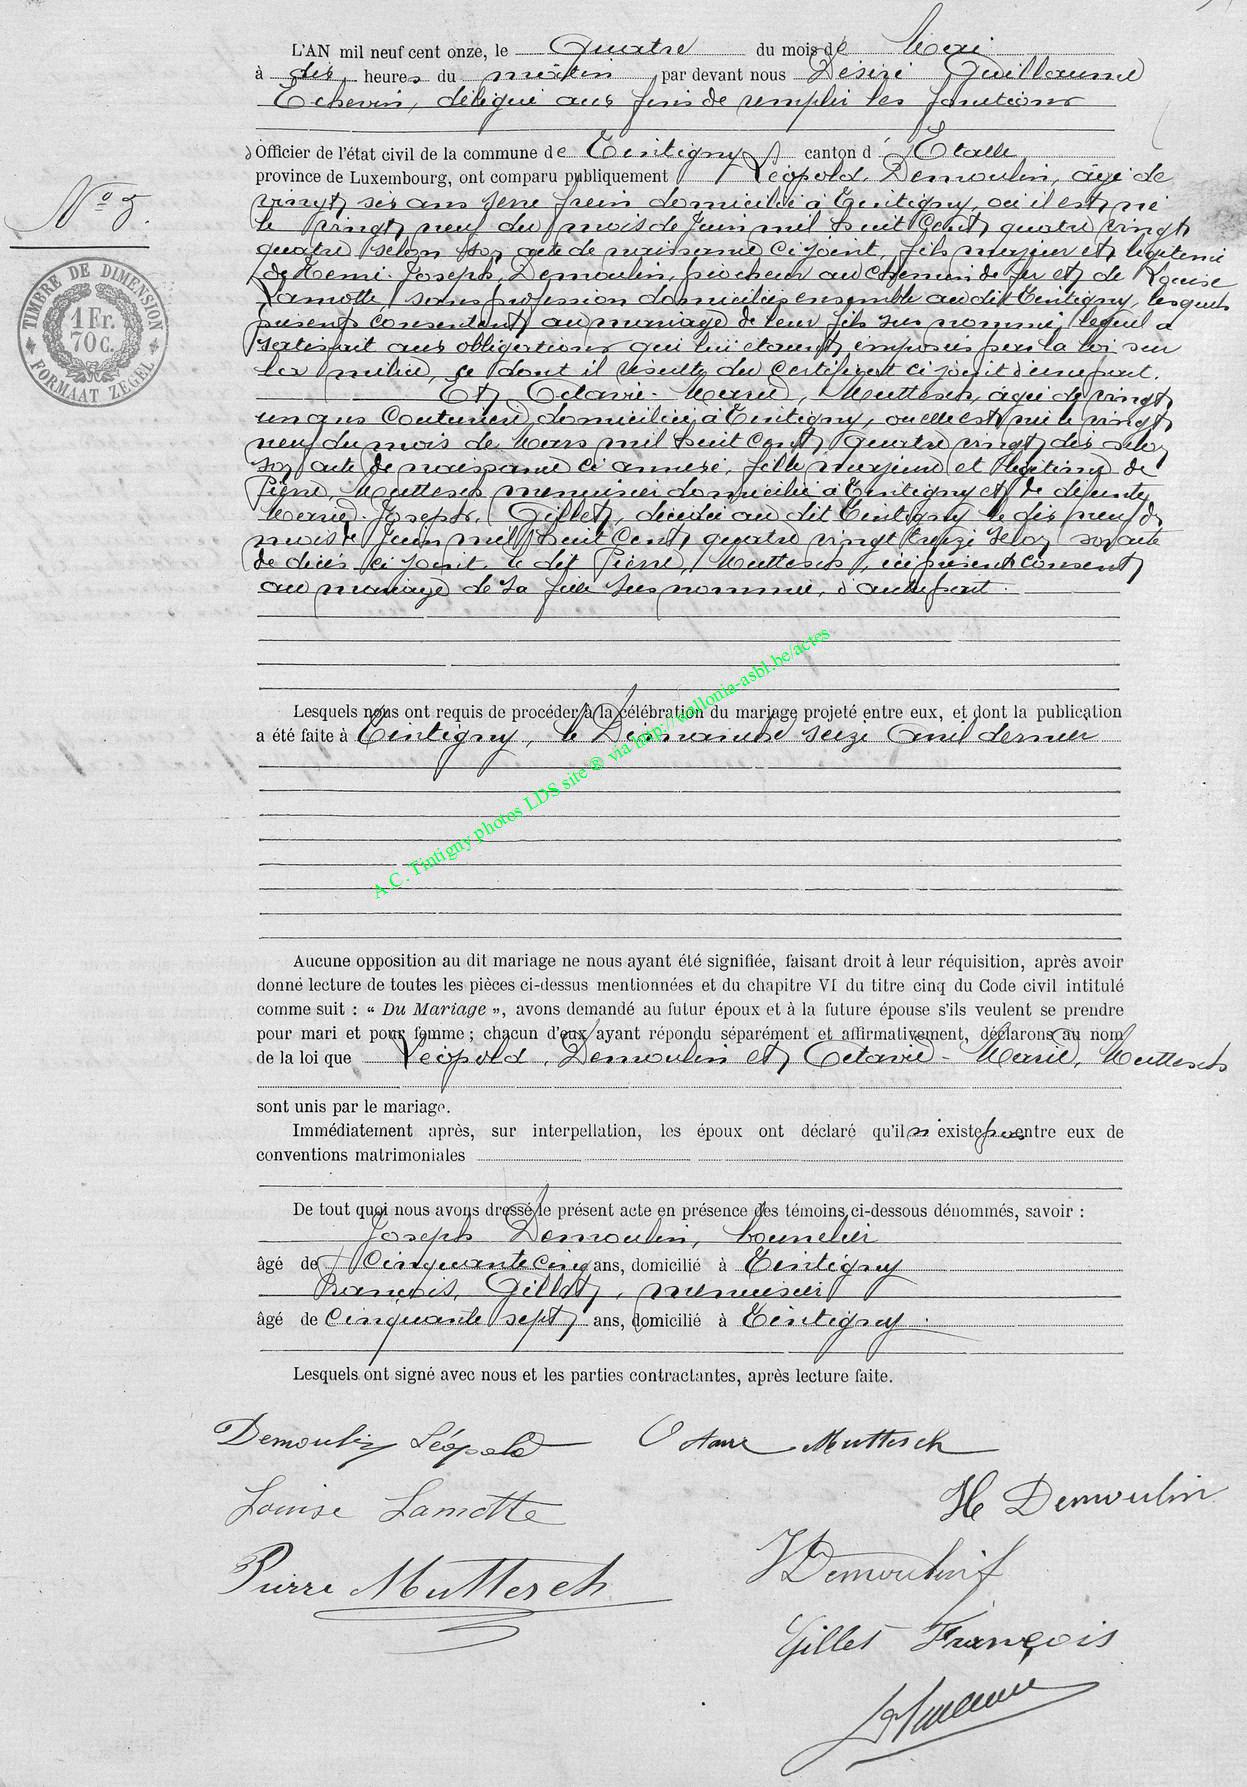 L'AN mil neuf cent onze, le Quatre du mois de Mai
à dix heures du matin par devant nous Désiré Guillaume
Echevin, délégué aux fins de remplir les fonctions
Officier de l'état civil de la commune de Tintigny canton d'Etalle
province de Luxembourg, ont comparu publiquement Léopold, Demoulin, âgé de
N° 5.
vingt six ans serre frein domicilié à Tintigny, où il est né
le vingt neuf du mois de Juin mil huit cent quatre vingt
quatre selon son acte de naissance ci joint, fils majeur et légitime
de Henri Joseph, Demoulin, piocheur au chemin de fer et de Louise
Lamotte, sans profession domiciliés ensemble au dit Tintigny, lesquels
présents consentent au mariage de leur fils sus nommé, lequel a
satisfait aux obligations qui lui étaient imposées par la loi sur
la milice, ce dont il résulte du certificat ci joint d'une part.
Et Octavie-Marie, Muttesch, âgée de vingt
un ans Couturière, domiciliée à Tintigny, où elle est née le vingt
neuf du mois de Mars mil huit cent quatre vingt dix selon
son acte de naissance ci annexé, fille majeure et légitime de
Pierre, Muttesch menuisier domicilié à Tintigny et de défunte
Marie-Joseph, Gillet, décédée au dit Tintigny le dix neuf du
mois de Juin mil huit cent quatre vingt treize selon son acte
de décès ci joint. Le dit Pierre, Muttesch, ici présent consent
au mariage de sa fille sus nommée, d'autre part.
TIMBRE DE DIMENSION
1 Fr.
70 c.
FORMAAT ZEGEL
Lesquels nous ont requis de procéder à la célébration du mariage projeté entre eux, et dont la publication
a été faite à Tintigny, le Dimanche seize Avril dernier
A.C. Tintigny photos LDS site ® via http://wallonia-asbl.be/actes
Aucune opposition au dit mariage ne nous ayant été signifiée, faisant droit à leur réquisition, après avoir
donné lecture de toutes les pièces ci-dessus mentionnées et du chapitre VI du titre cinq du Code civil intitulé
comme suit : « Du Mariage », avons demandé au futur époux et à la future épouse s'ils veulent se prendre
pour mari et pour femme ; chacun d'eux ayant répondu séparément et affirmativement, déclarons au nom
de la loi que Léopold, Demoulin et Octavie-Marie, Muttesch
sont unis par le mariage.
Immédiatement après, sur interpellation, les époux ont déclaré qu'il n'existe pas entre eux de
conventions matrimoniales
De tout quoi nous avons dressé le présent acte en présence des témoins ci-dessous dénommés, savoir :
Joseph Demoulin,
âgé de Cinquante cinq ans, domicilié à Tintigny
François, Gillet, menuisier
âgé de Cinquante sept ans, domicilié à Tintigny.
Lesquels ont signé avec nous et les parties contractantes, après lecture faite.
Demoulin Léopold Octavie Muttesch
Louise Lamotte H Demoulin
Pierre Muttesch J Demoulin
Gillet François